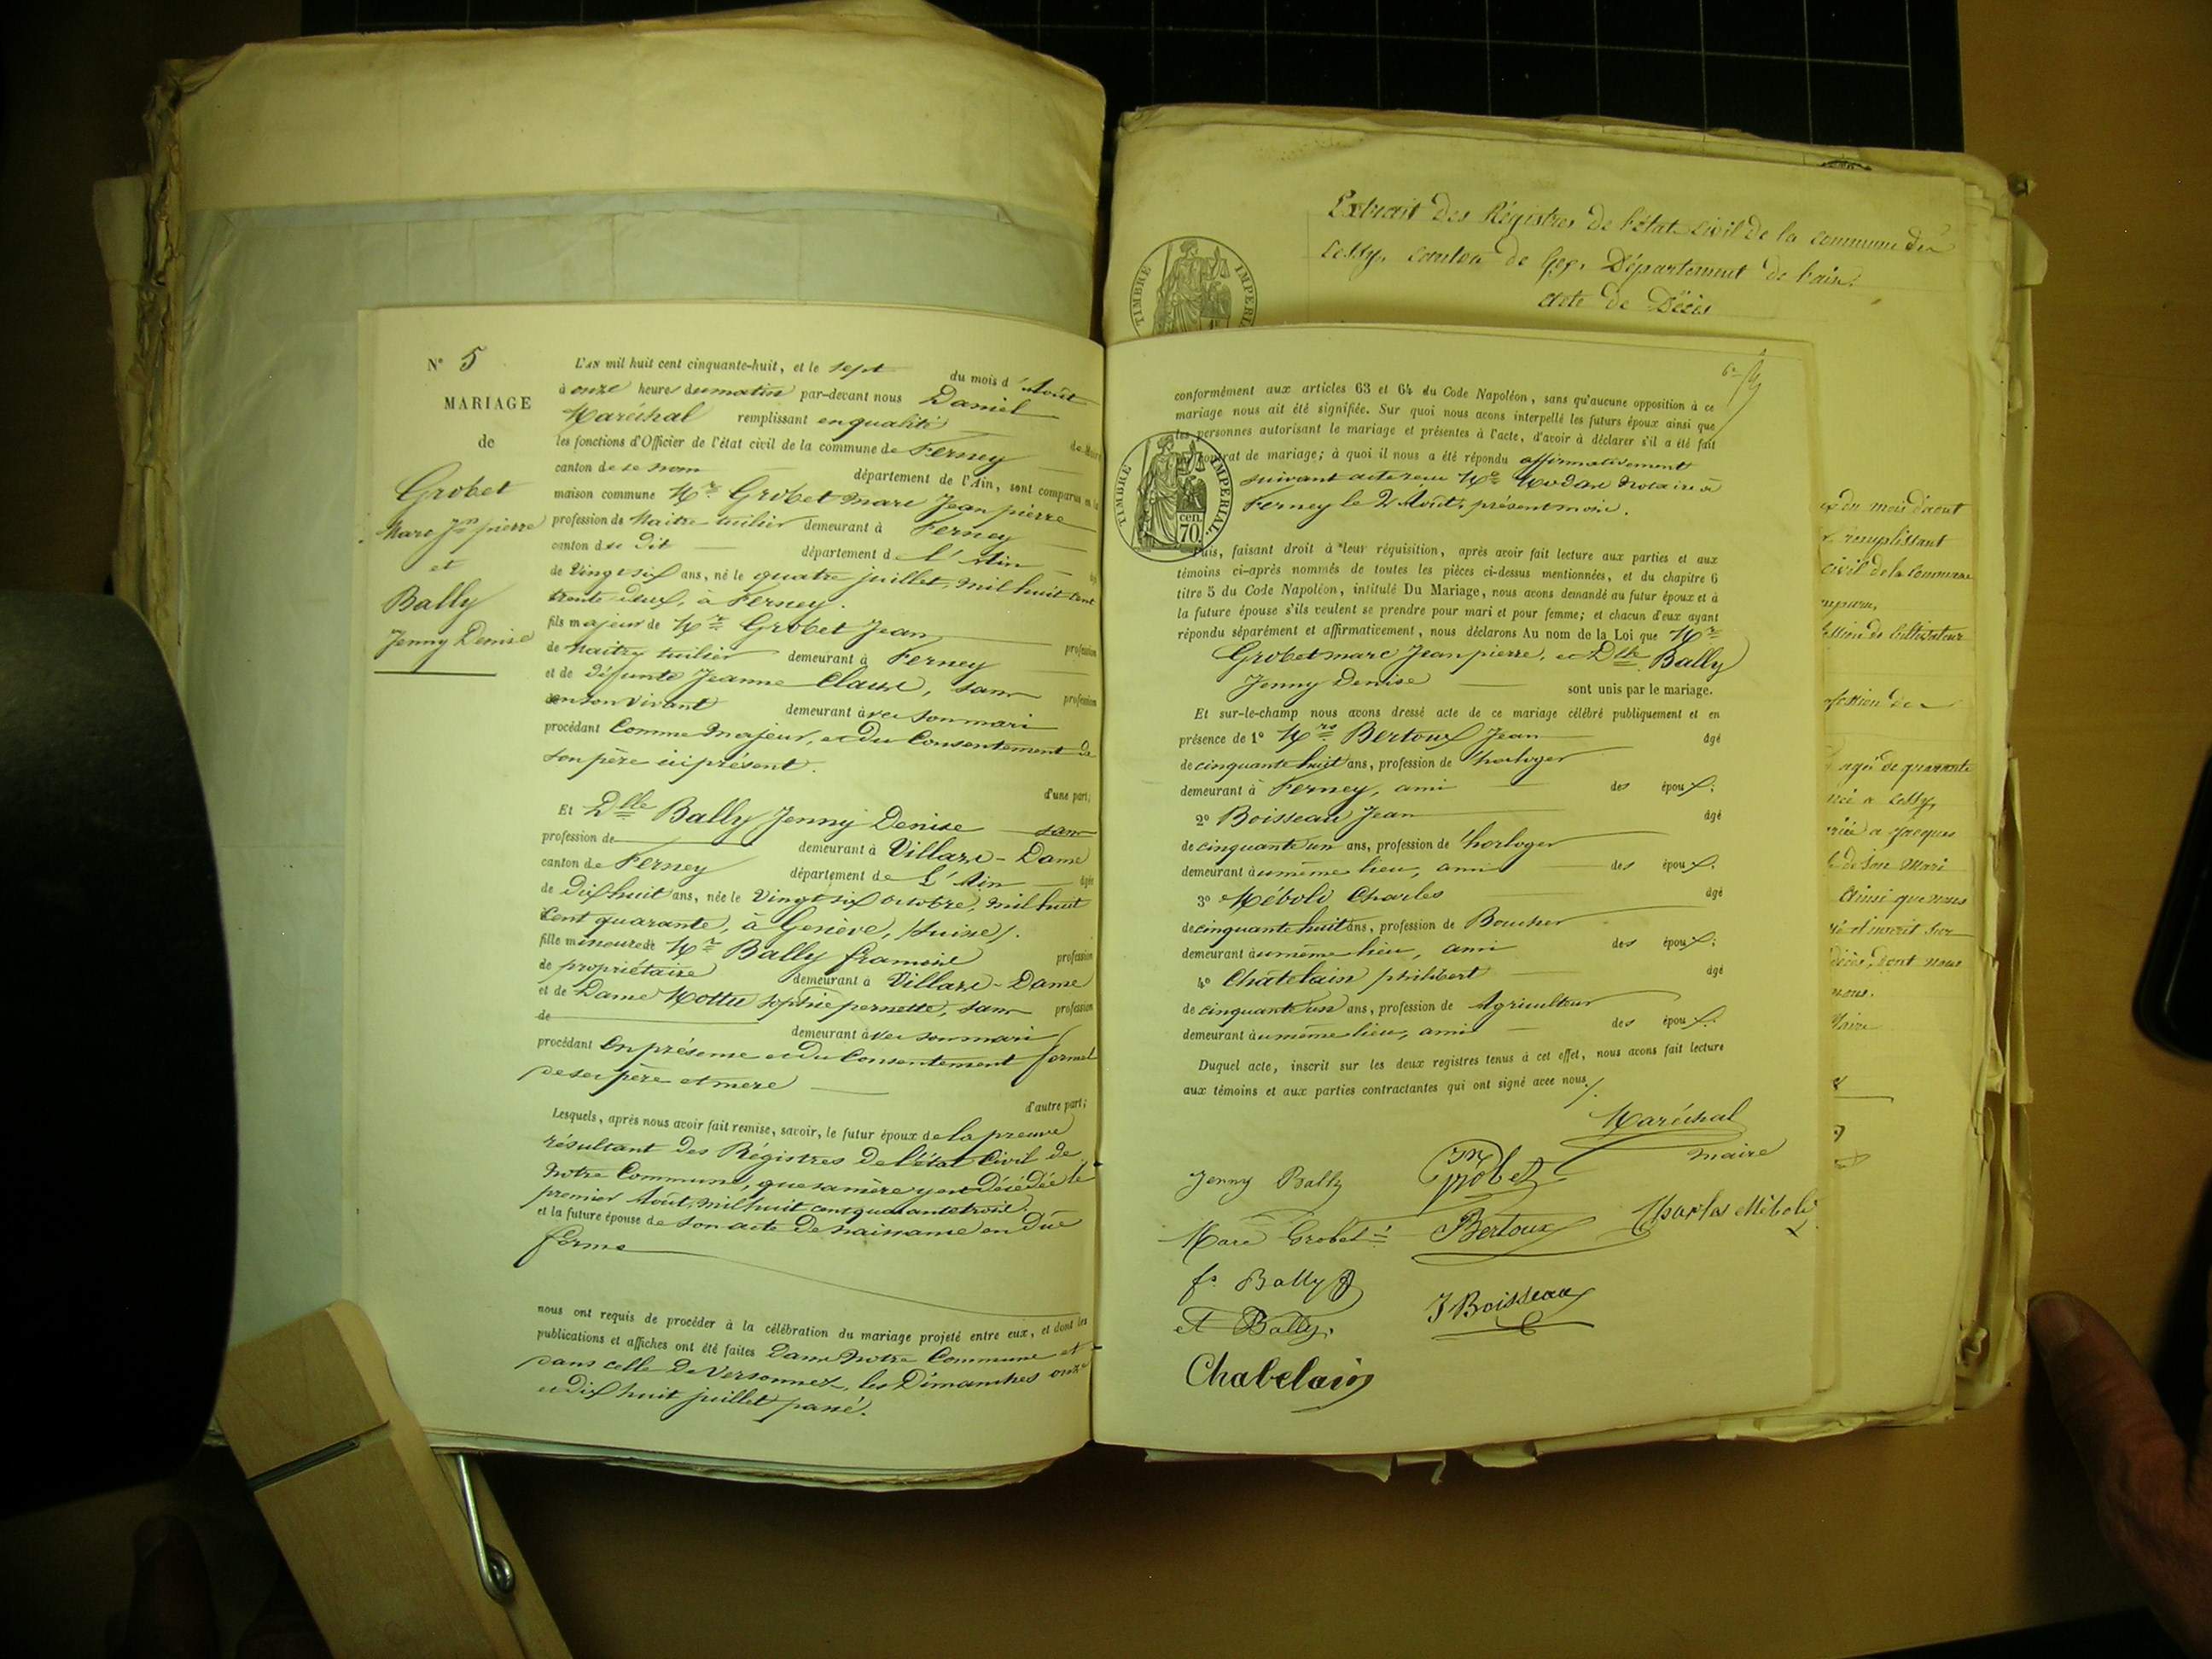 N° 5
MARIAGE
de
Grobet
Marc Jn pierre
et
Bally
Jenny Denise
L'AN mil huit cent cinquante-huit, et le sept du mois d'Août
à onze heures du matin par-devant nous Daniel
Maréchal remplissant en qualité de Maire
les fonctions d'Officier de l'état civil de la commune de Ferney
canton de ce nom département de l'Ain, sont comparus en la
maison commune Mr Grobet Marc Jean pierre
profession de Maitre tuilier demeurant à Ferney
canton de dit département de l'Ain âgé
de Vingt six ans, né le quatre juillet, mil huit cent
trente-deux, à Ferney.
fils majeur de Mr Grobet Jean profession
de Maitre tuilier demeurant à Ferney
et de défunte Jeanne Claux, sans profession
en son vivant demeurant avec son mari
procédant Comme Majeur, et du Consentement de
son père ici présent.
d'une part;
Et Dlle Bally Jenny Denise sans
profession de demeurant à Villard-Dame
canton de Ferney département de L'Ain âgée
de Dix huit ans, née le Vingt six octobre, mil huit
Cent quarante, à Genève, (Suisse).
fille mineure de Mr Bally François profession
de propriétaire demeurant à Villard-Dame
et de Dame Mottu Sophie pernette, sans profession
de demeurant avec son mari
procédant En présence et du Consentement formel
de ses père et mère
d'autre part;
Lesquels, après nous avoir fait remise, savoir, le futur époux de la preuve
résultant des Régistres de l'état Civil de
Notre Commune, que sa mère y est Décédée le
premier Août, mil huit cent quarante trois.
et la future épouse de son acte de naissance en Due
forme
nous ont requis de procéder à la célébration du mariage projeté entre eux, et dont les
publications et affiches ont été faites Dans Notre Commune et
Dans celle de Versonnex, les Dimanches onze
et Dix huit juillet passé.
Extrait des Régistres de l'état civil de la commune de
Cessy, canton de Gex, Département de l'ain.
Acte de Décès
TIMBRE IMPERIAL
conformément aux articles 63 et 64 du Code Napoléon, sans qu'aucune opposition à ce
mariage nous ait été signifiée. Sur quoi nous avons interpellé les futurs époux ainsi que
les personnes autorisant le mariage et présentes à l'acte, d'avoir à déclarer s'il a été fait
contrat de mariage; à quoi il nous a été répondu affirmativement
suivant acte reçu Me Notaire à
Ferney le 2 Août, présent mois.
TIMBRE IMPERIAL.
cen.
70.
Puis, faisant droit à leur réquisition, après avoir fait lecture aux parties et aux
témoins ci-après nommés de toutes les pièces ci-dessus mentionnées, et du chapitre 6
titre 5 du Code Napoléon, intitulé Du Mariage, nous avons demandé au futur époux et à
la future épouse s'ils veulent se prendre pour mari et pour femme; et chacun d'eux ayant
répondu séparément et affirmativement, nous déclarons Au nom de la Loi que Mr
Grobet Marc Jean pierre, et Dlle Bally
Jenny Denise sont unis par le mariage.
Et sur-le-champ nous avons dressé acte de ce mariage célébré publiquement et en
présence de 1° Mrs Bertoux Jean âgé
de cinquante huit ans, profession de horloger
demeurant à Ferney, ami des époux;
2° Boisseau Jean âgé
de cinquante un ans, profession de horloger
demeurant au même lieu, ami des époux;
3° Méboli Charles âgé
de cinquante huit ans, profession de Boucher
demeurant au même lieu, ami des époux;
4° Chatelain philibert âgé
de cinquante un ans, profession de Agriculteur
demeurant au même lieu, ami des époux.
Duquel acte, inscrit sur les deux registres tenus à cet effet, nous avons fait lecture
aux témoins et aux parties contractantes qui ont signé avec nous.
Maréchal
maire
Jenny Bally
Grobet
Marc Grobet
Bertoux
Charles Méboli
fs Bally
J Boisseau
Bally
Chabelain
du mois d'aout
remplissant
civil de la Commune
profession de Cultivateur
profession de
agée de quarante
née à Cessy,
mariée a Jacques
de son Mari
ainsi que nous
et inscrit sur
décès, dont nous
nous.
Maire